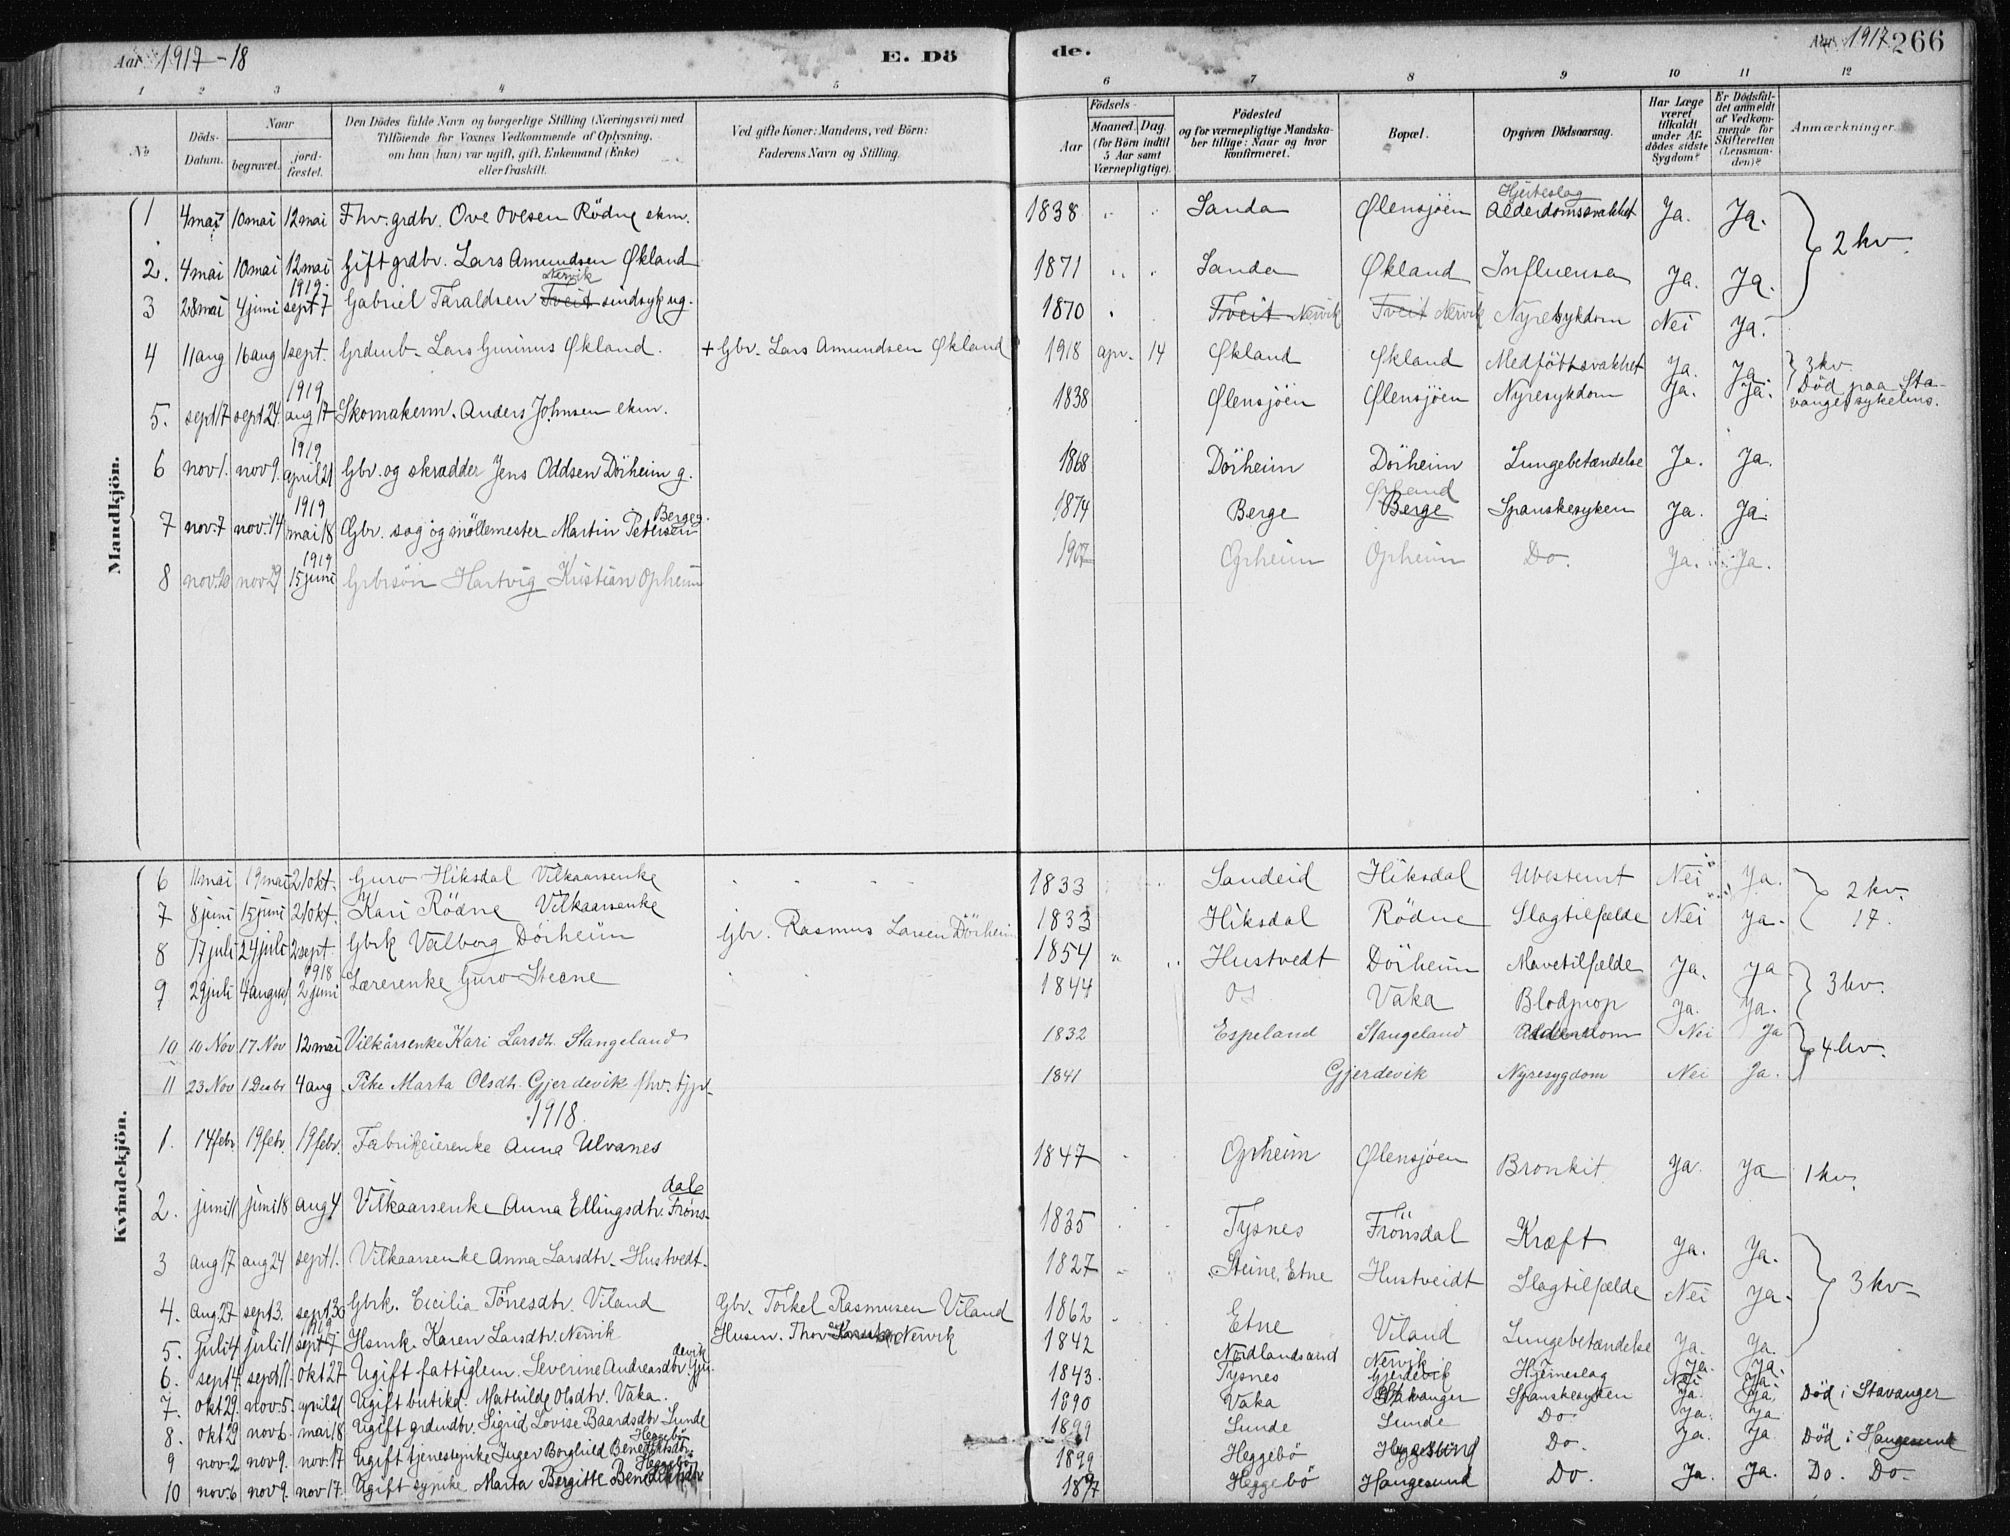 Aar 1917-18 E. Dö de. Aar 1917 266
1 2 3 4 5 6 7 8 9 10 11 12
No Döds-Datum. Naar begravet. jordfæstet. Den Dödes fulde Navn og borgerlige Stilling (Næringsvei) med Tilföiende for Voxnes Vedkommende af Oplysning, om han (hun) var ugift, gift, Enkemand (Enke) eller fraskilt. Ved gifte Koner: Mandens, ved Börn: Faderens Navn og Stilling. Födsels- Aar Maaned. Dag. (for Börn indtil 5 Aar samt Værnepligtige). Födested og for værnepligtige Mandskaber tillige: Naar og hvor konfirmeret. Bopæl. Opgiven Dödsaarsag. Har Læge været tilkaldt under Afdödes sidste Sygdom? Er Dödsfaldet anmeldt af Vedkommende for Skifteretten (Lensmanden)? Anmærkninger.
Mandkjön.
1 4 mai 10 mai 12 mai Fhv. grdbr. Ove Ovesen Rödne ekm. 1838 Sanda Ølensjöen Hjerteslag Alderdomssvakhet Ja. Ja.
2. 4 mai 10 mai 12 mai Gift grdbr. Lars Amundsen Økland 1871 Sanda Økland Influensa Ja. Ja. 2 kv.
3 28 mai 4 juni 1919 sept 7 Gabriel Taraldsen Tveit Nervik sindsyk ug. 1870 Tveit Nervik Tveit Nervik Nyresykdom Nei Ja.
4 11 aug 16 aug 1 sept. Grdmb. Lars Gurinus Økland. + Gbr. Lars Amundsen Økland 1918 apr. 14 Økland Økland Medföttsvakhet Ja. Ja. 3 kv.
5. sept 17 sept 24 1919 aug 17 Skomakerm. Anders Johnsen ekm. 1838 Ølensjöen Ølensjöen Nyresykdom Ja. Ja. Död paa Stavanger sykehus.
6 nov 1. nov 9. 1919 april 21 Gbr. og skrædder Jens Oddsen Dörheim g. 1868 Dörheim Dörheim Lungebetændelse Ja. Ja.
7 nov. 7 nov. 14 1919 mai 18 Gbr. sag og möllemester Martin Petersen Berge g. 1874 Berge Berge Spanskesyken Ja. Ja
8 nov. 20 nov 29 1919 15 juni Grbrsön Hartvig Kristian Opheim 1907 Opheim Opheim Do. Ja. Ja.
Kvindekjön.
6 11 mai 19 mai 21 okt. Guro Hiksdal Vilkaarsenke 1833 Sandeid Hiksdal Ubestemt Nei Ja.
7 8 juni 15 juni 21 okt. Kari Rödne Vilkaarsenke 1833 Hiksdal Rödne Slagtilfælde Nei Ja. 2 kv. 17.
8 17 juli 24 juli 2 sept. Gbrk Valborg Dörheim Gbr. Rasmus Larsen Dörheim 1854 Hustvedt Dörheim Mavetilfælde Ja. Ja
9 29 juli 4 august 1918 2 juni Lærerenke Guro Steene 1844 Vaka Blodprop Ja. Ja. 3 kv.
10 10 Nov 17 Nov 12 mai Vilkårsenke Kari Larsdt. Stangeland 1832 Espeland Stangeland Alderdom Nei Ja
11 23 Nov 1 Desbr 4 aug Pike Marta Olsdt. Gjerdevik fhv. tjp. 1841 Gjerdevik Nyresygdom Nei Ja. 4 kv.
1918.
1. 14 febr. 19 febr. 19 febr. Fabrikeierenke Anna Ulvanes 1847 Opheim Ølensjöen Bronkit Ja. Ja 1 kv.
2. juni 11 juni 18 aug 4 Vilkaarsenke Anna Ellingsdtr. Frönsdal 1835 Tysnes Frönsdal Kræft Ja. Ja.
3 aug 17 aug 24 sept 1. Vilkaarsenke Anna Larsdtr. Hustvedt. 1827 Steine, Etne Hustveidt Slagtilfælde Nei Ja. 3 kv.
4. aug. 27 sept 3. sept 30 Gbrk. Cecilia Tönesdtr. Viland Gbr. Torkel Rasmusen Viland 1862 Etne Viland Lungebetændelse Ja. Ja.
5. juli 4 juli 11 1919 sept 7 Hsmk. Karen Larsdtr. Nervik Husm. Thor Nervik 1842 Nordlandsand Nervik Hjerneslag Ja. Ja.
6. sept 4. sept 11. okt 27 Ugift fattiglem. Severine Andreasdtr. Gjerdevik 1843. Tysnes Gjerdevik Nei Ja.
7. okt 29. nov. 5. april 21 Ugift butikd. Mathilde Olsdtr. Vaka. 1890 Vaka Stavanger Spanskesyken Ja. Ja. Död i Stavanger
8. okt 29 nov 6. mai 18 Ugift grdmdtr. Sigrid Lovise Baardsdtr Sunde 1899 Sunde Sunde Do Ja. Ja
9 nov. 2 nov 9. nov. 17 Ugift tjenestepike Inger Borghild Benediktsdtr. Heggebö 1899 Heggebö Do. Ja. Ja Död i Haugesund
10 nov. 6 nov 9. nov 17. Ugift sypike Marta Bergitte Benediktsdtr Heggebö 1897 Heggebö Haugesund Do. Ja. Ja. Do. Do.